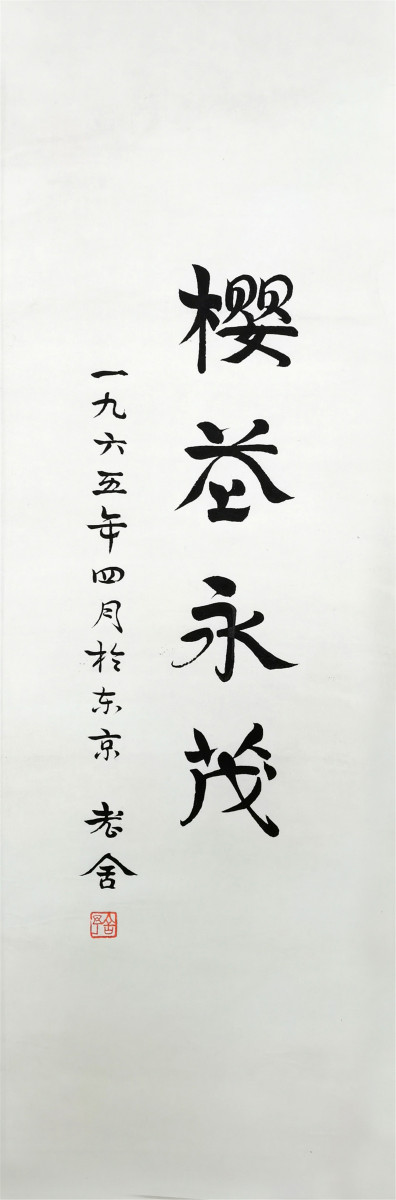 櫻花永茂
一九六五年四月於东京 老舍
舍予